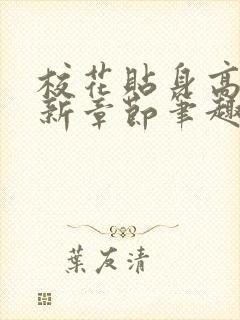 校花貼身高
新章節筆趣
葉友清